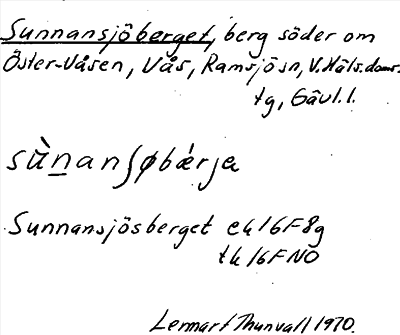 Sunnansjöberget, berg söder om
Öster-Våsen, Vås, Ramsjösn, V. Häls. doms.
tg, Gävl. l.
sùn̲anʃøbǽrja
Sunnansjösberget ek 16F8g
tk 16FNO
Lennart Thunvall 1970.